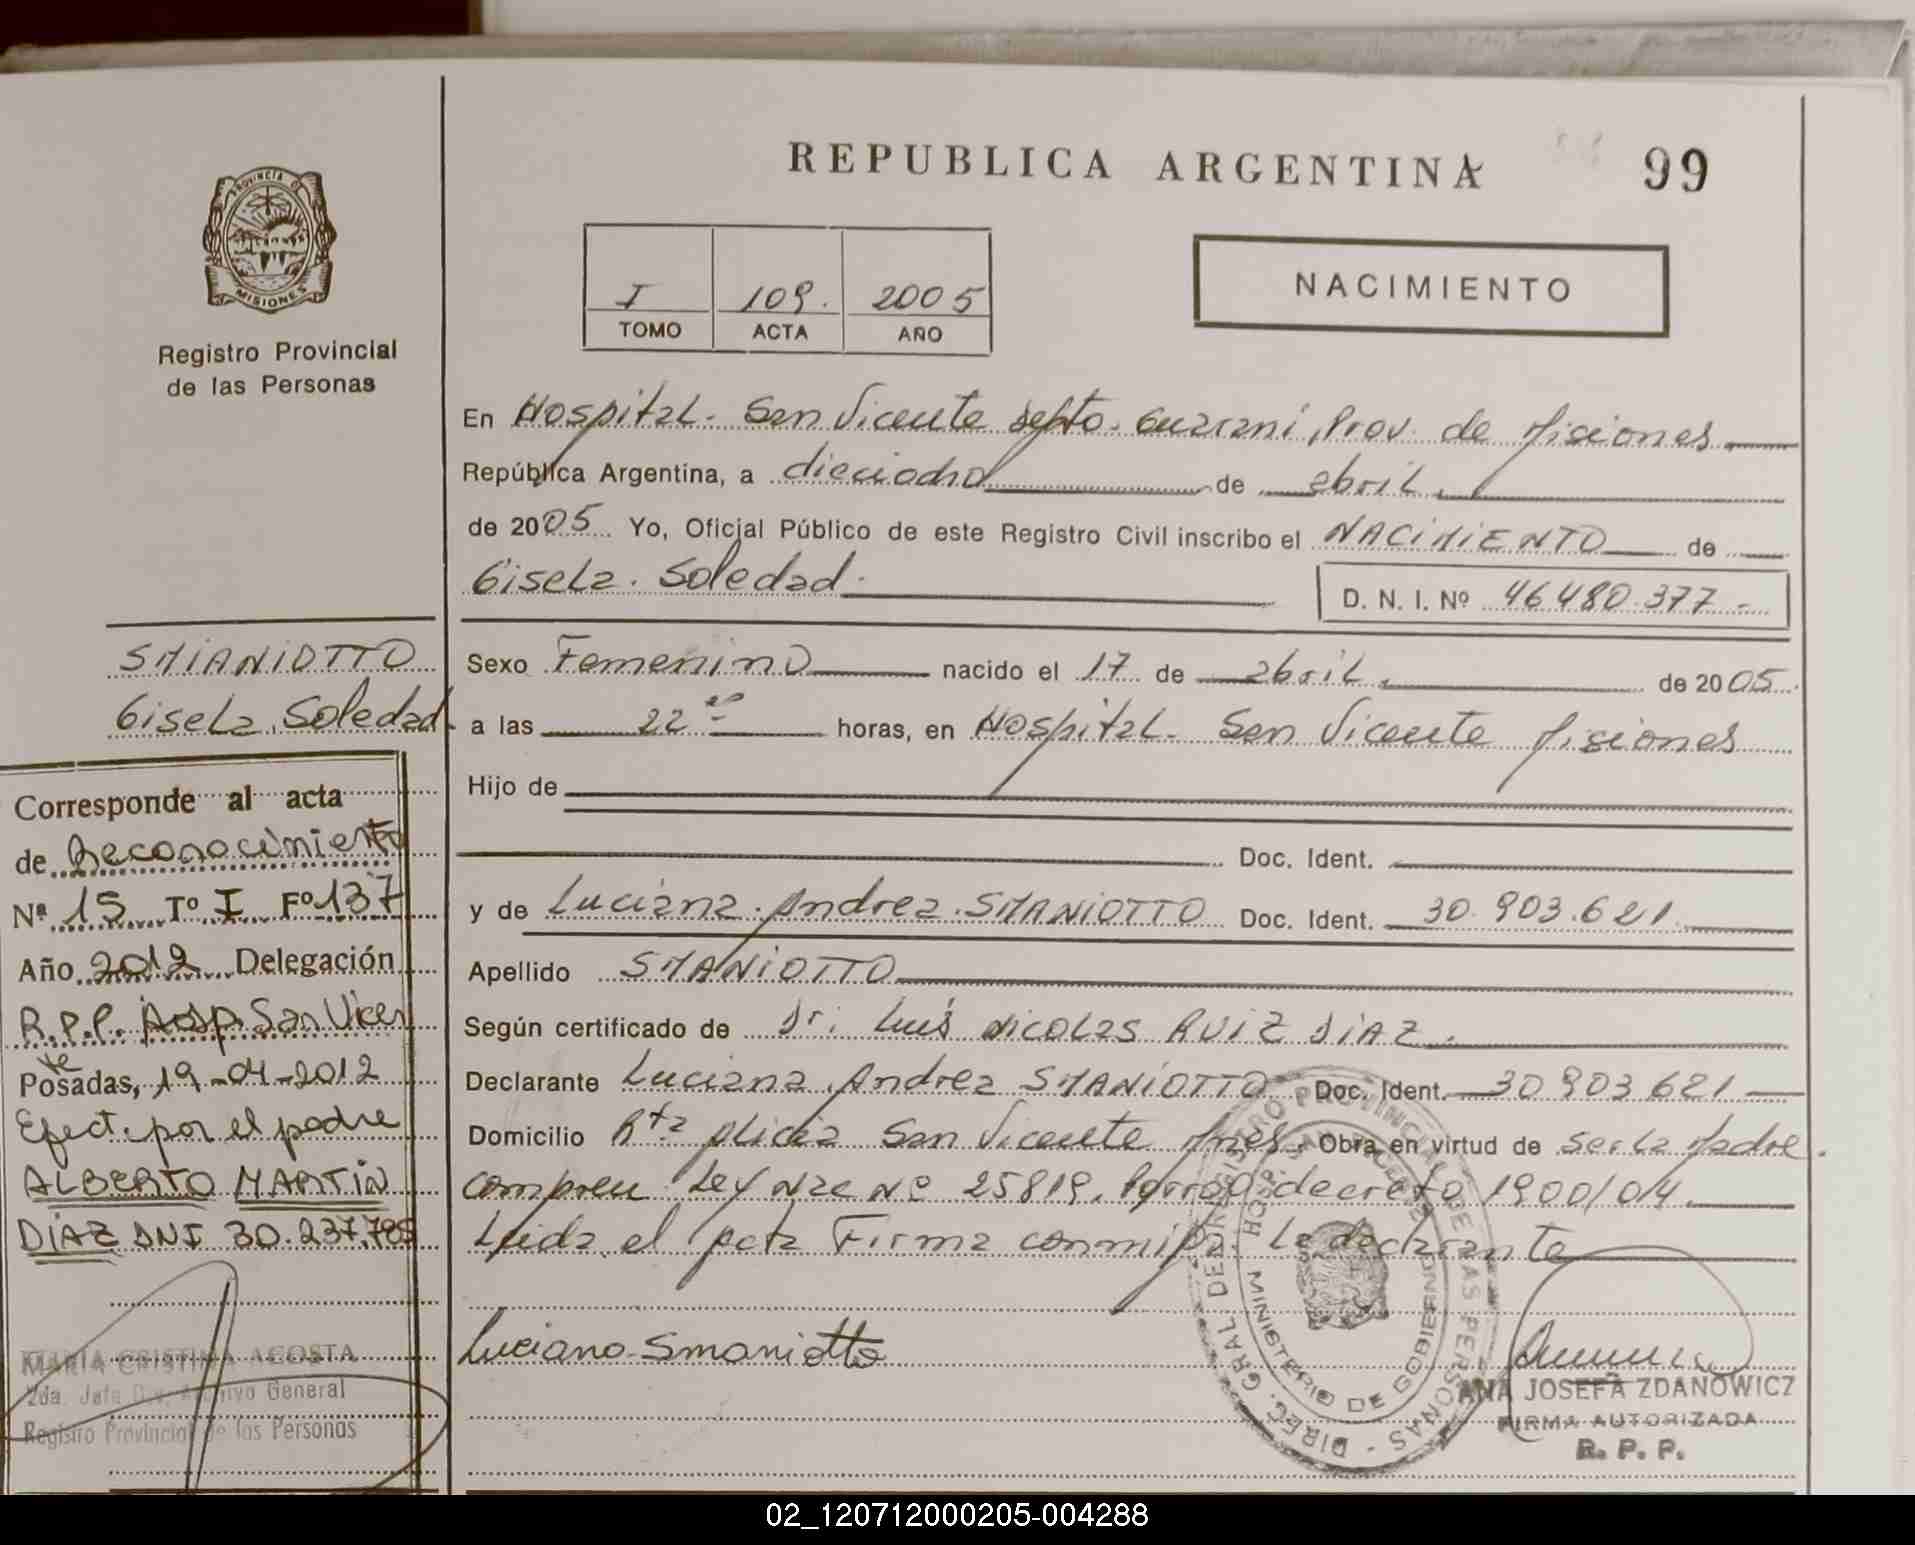 REPUBLICA ARGENTINA 99
PROVINCIA DE
MISIONES
Registro Provincial
de las Personas
I 109. 2005
TOMO ACTA AÑO
NACIMIENTO
En Hospital. San Vicente Depto. Guaraní, Prov. de Misiones
República Argentina, a dieciocho de abril
de 2005 Yo, Oficial Público de este Registro Civil inscribo el NACIMIENTO de
Gisela. Soledad. D. N. I. Nº 46480.377-
Sexo Femenino nacido el 17 de abril. de 2005.
a las 22 horas, en Hospital. San Vicente Misiones
Hijo de
Doc. Ident.
y de Luciana. Andrea. SMANIOTTO Doc. Ident. 30.903.621.
Apellido SMANIOTTO
Según certificado de Dr. Luis Nicolas RUIZ DIAZ.
Declarante Luciana Andrea SMANIOTTO Doc. Ident. 30903621
Domicilio Rta Alicia San Vicente Mnes. Obra en virtud de ser La Madre.
Ley Nac Nº 25819. decreto 1900/04.
Leida el Acta Firma conmigo La declarante
Luciana Smaniotto
DIREC. GRAL. DE REGISTRO PROVINCIAL DE LAS PERSONAS
HOSP. SAN VICENTE
MINISTERIO DE GOBIERNO
ANA JOSEFA ZDANOWICZ
FIRMA AUTORIZADA
R. P. P.
SMANIOTTO
Gisela. Soledad.
Corresponde al acta
de Reconocimiento
Nº 15 Tº I Fº 137
Año 2012 Delegación
R.P.P. Hosp. San Vicen
te
Posadas, 19-04-2012
Efect. por el padre
ALBERTO MARTIN
DIAZ DNI 30.237.785
MARIA CRISTINA ACOSTA
2da. Jefa Div. Archivo General
Registro Provincial de las Personas
02_120712000205-004288